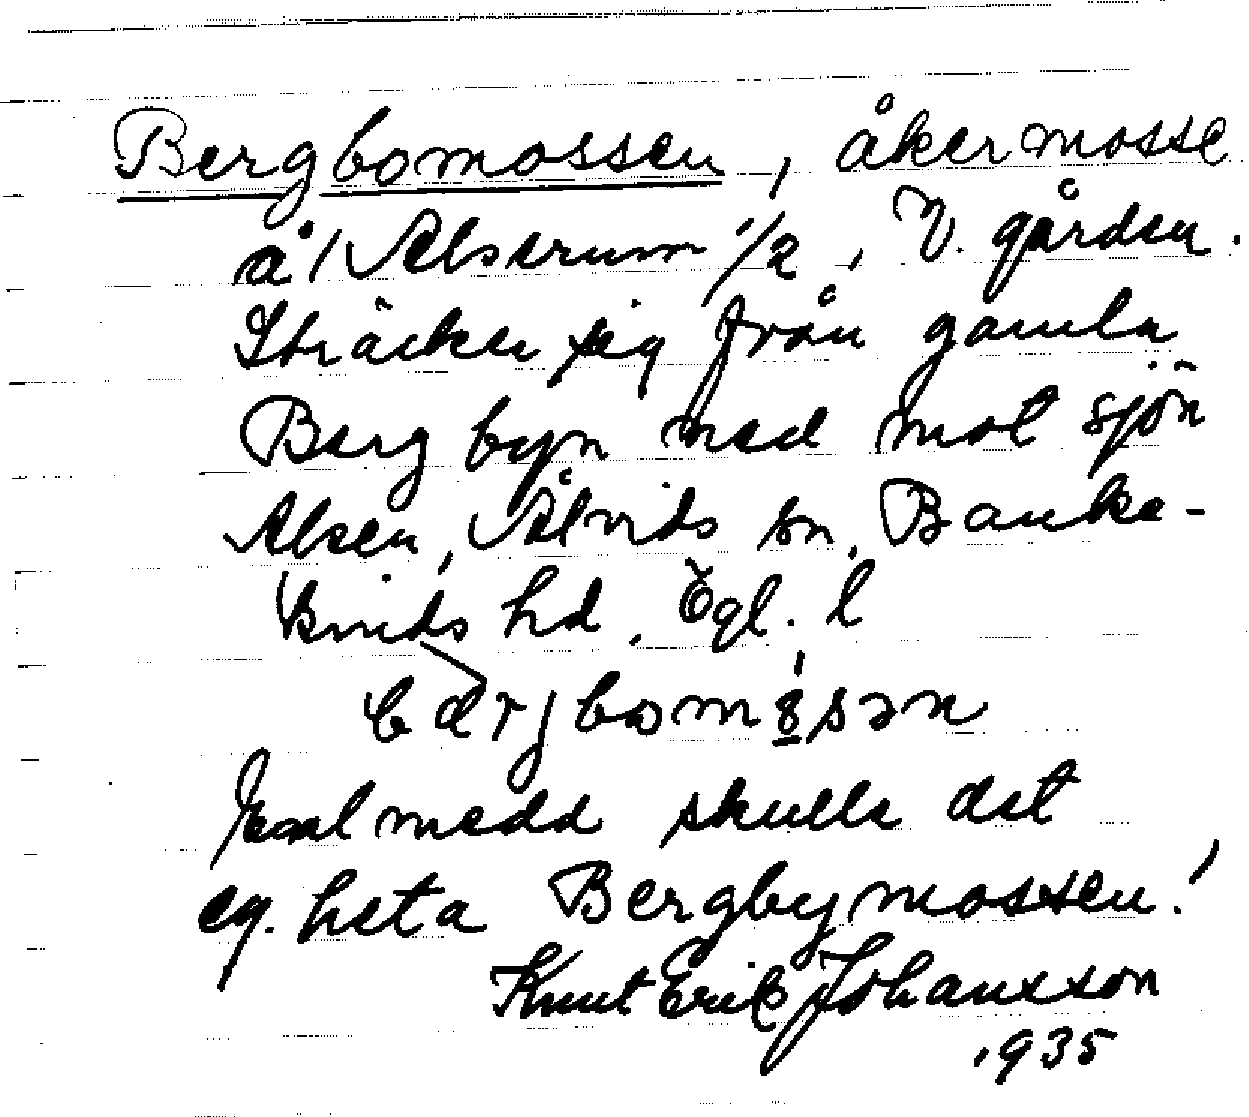 Bergbomossen, åkermosse
å Alserum 1/2, V. gården.
Sträcker sig från gamla
Berg byn ned mot sjön
Alsen, Åtvids sn, Banke-
kinds hd, Ögl.
bærjbomosən
skulle det
eg. heta Bergbymossen!
Knut Erik Johansson
1935